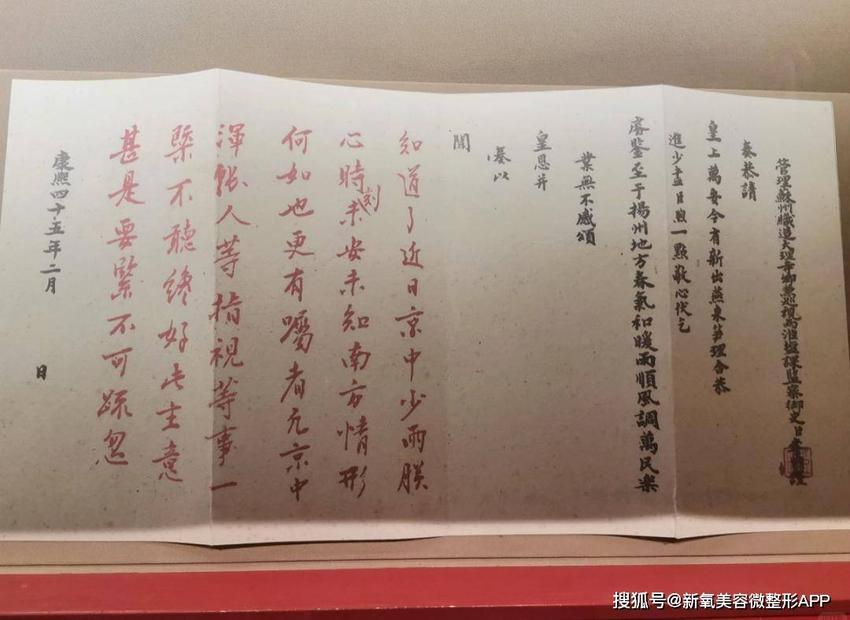 管理蘇州織造大理寺卿兼巡視兩淮鹽課監察御史臣李煦謹
奏恭請
皇上萬安今有新出燕來笋理合恭
進少盡臣煦一點敬心伏乞
睿鑒至于揚州地方春氣和暖雨順風調萬民樂
業無不感頌
皇恩并
奏以
聞
知道了近日京中少雨朕
心時刻未安未知南方情形
何如也更有囑者凡京中
渾賬人等指視等事一
槩不聽終好此主意
甚是要緊不可疎忽
康熙四十五年二月 日
搜狐号@新氧美容微整形APP